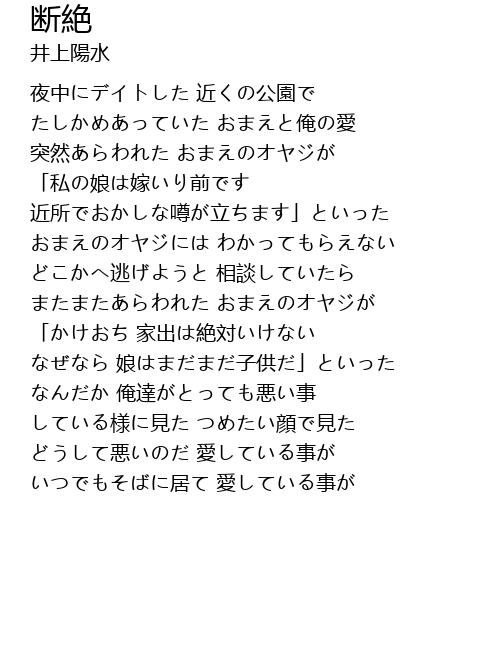 断絶
井上陽水
夜中にデイトした 近くの公園で
たしかめあっていた おまえと俺の愛
突然あらわれた おまえのオヤジが
「私の娘は嫁いり前です
近所でおかしな噂が立ちます」といった
おまえのオヤジには わかってもらえない
どこかへ逃げようと 相談していたら
またまたあらわれた おまえのオヤジが
「かけおち 家出は絶対いけない
なぜなら 娘はまだまだ子供だ」といった
なんだか 俺達がとっても悪い事
している様に見た つめたい顔で見た
どうして悪いのだ 愛している事が
いつでもそばに居て 愛している事が